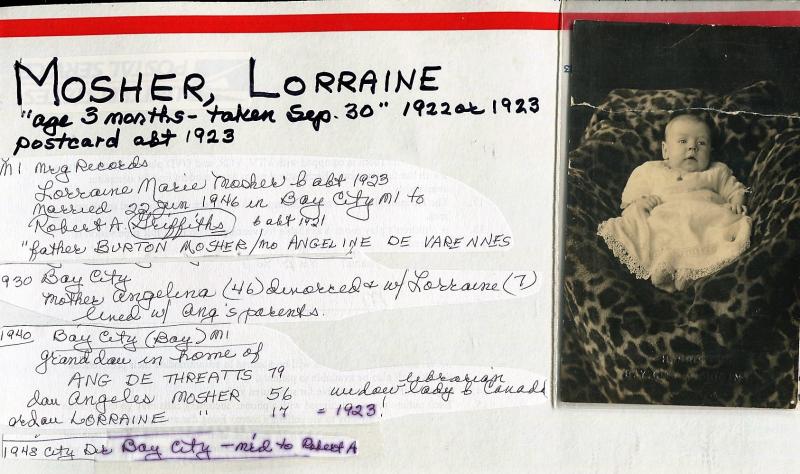 MOSHER, LORRAINE
"age 3 months - taken Sep. 30" 1922 or 1923
postcard abt 1923
MI Mrg Records
Lorraine Marie Mosher b abt 1923
married 22 Jun 1946 in Bay City MI to
Robert A. Griffiths b abt 1921
"father BURTON MOSHER/mo ANGELINE DE VARENNES
1930 Bay City
mother Angelina (46) divorced & w/ Lorraine (7)
lived w/ Ang's parents.
1940 Bay City (Bay) MI
grand dau in home of
ANG DE THREATTS 79
dau Angeles MOSHER 56 widow librarian lady b Canada
gr dau LORRAINE " 17 = 1923!
1948 City Dir Bay City - m'd to Robert A